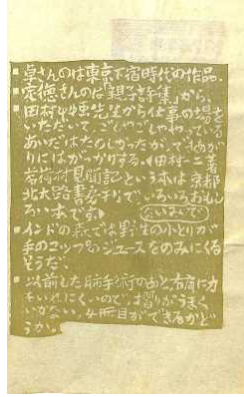 卓さんのは東京下宿時代の作品。
定徳さんのは「親子詩集」から、
田村一二先生から仕事の場を
いただいて、ごしゃごしゃやっている
あいだはたのしかったが、できあが
りにはがっかりする。(田村一二著
茗荷村見聞記という本は京都
北大路書房刊で、いろいろおもし
ろい本です。)
インドの森では野生の小とりが
手のコップのジュースをのみにくる
そうだ。
以前した肺手術のあと右肩に力
をいれにくいので、摺りがうまく
いかない。4冊目ができるかど
うか。